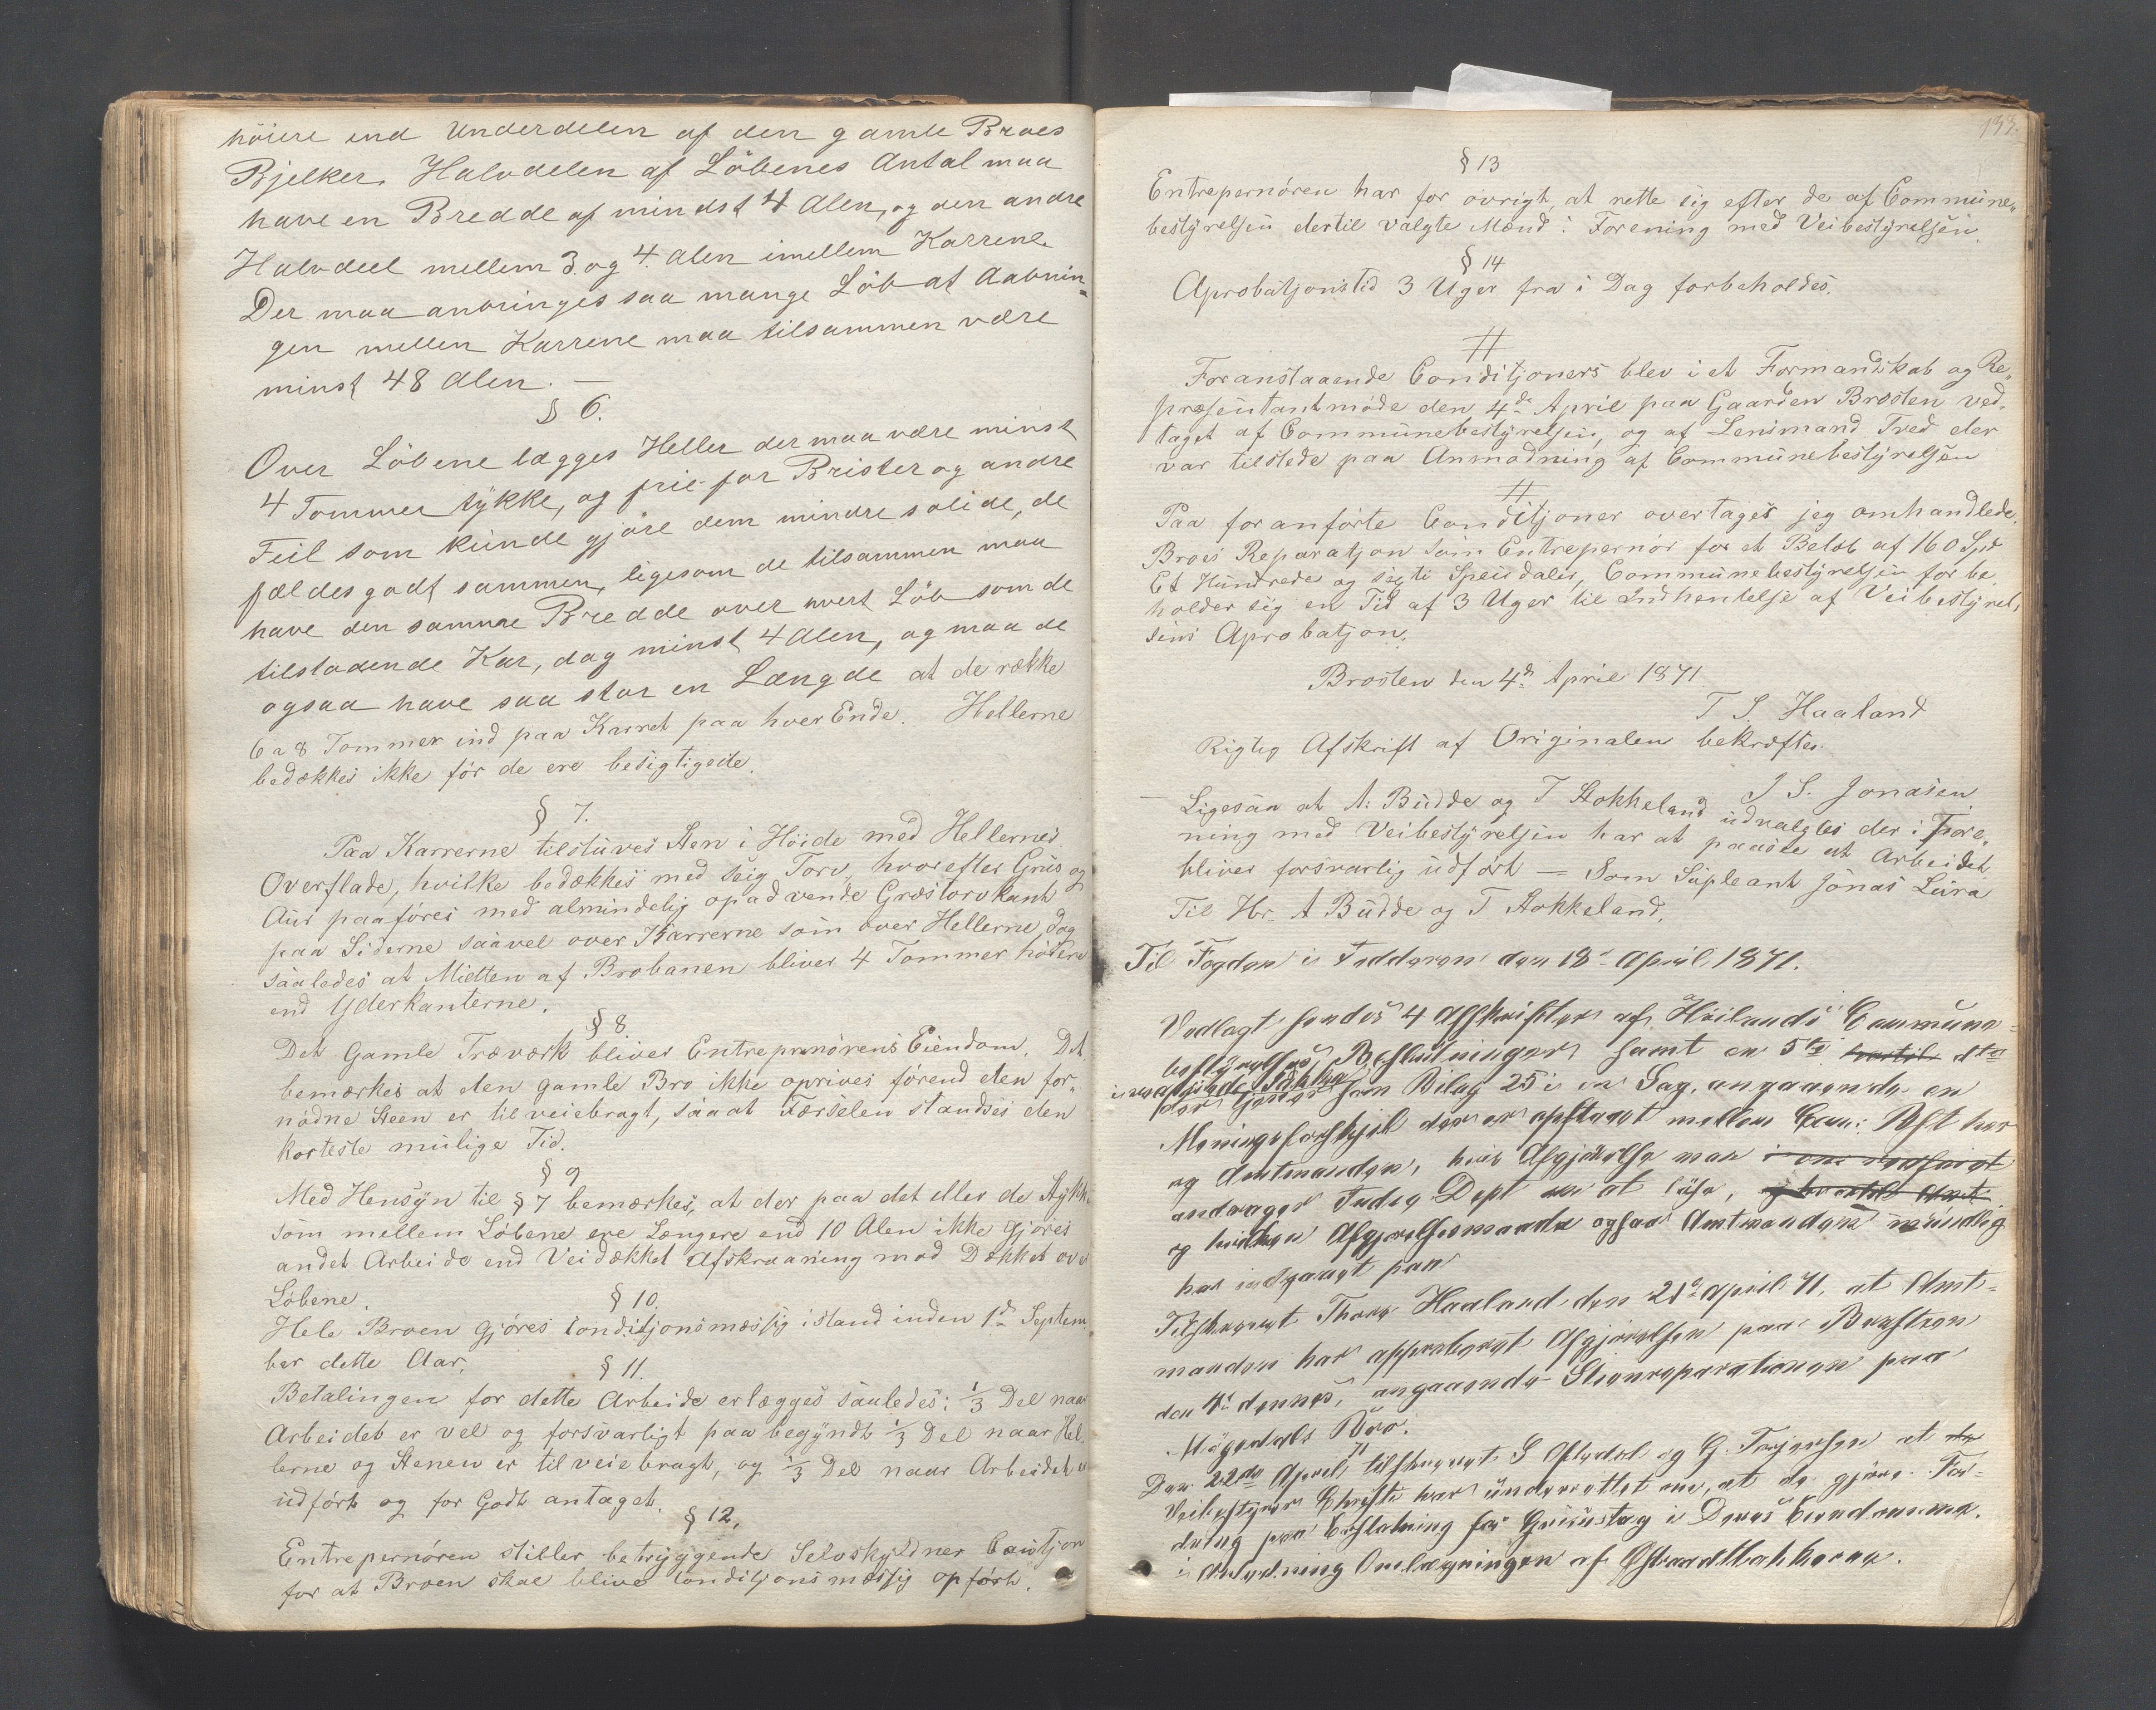 höiere end Underdelen af den gamle Broes
Bjelker. Halvdelen af Löbenes Antal maa
have en Bredde af mindst 4 Alen, og den andre
Halvdeel mellem 3. og 4. Alen imellem Karrene.
Der maa anbringes saa mange Löb at Aabnin=
gen mellem Karrene maa tilsammen være
minst 48 Alen. —
§ 6.
Over Löbene lægges Heller der maa være minst
4 Tommer tykke, og frie for Brister og andre
Feil som kunde gjöre dem mindre solide, de
fældes godt sammen, ligesom de tilsammen maa
have den samme Bredde over hvert Löb som de
tilstødende Kar, dog minst 4 Alen, og maa de
ogsaa have saa stor en Længde at de række
6 a 8 Tommer ind paa Karret paa hver Ende. Hellerne
bedækkes ikke för de ere besigtigede.
§ 7.
Paa Karrerne tilstuves Sten i Höide med Hellernes
Overflade, hvilke bedækkes med seig Torv, hvorefter Grus og
Aur paaföres med almindelig opadvende Græstorvkant
paa Siderne saavel over Karrerne som over Hellerne, dog
saaledes at Mietten af Brobanen bliver 4 Tommer höiere
end Yderkanterne.
§ 8.
Det Gamle Træværk bliver Entreprenörens Eiendom. Det
bemærkes at den gamle Bro ikke oprives förend den for„
nödne Steen er tilveiebragt, saaat Færselen standses den
korteste mulige Tid.
§ 9
Med Hensyn til § 7 bemærkes, at der paa det eller de Stykke
som mellem Löbene ere Længere end 10 Alen ikke gjöres
andet Arbeide end Veidækket Afskraaning mod Dækket over
Löbene.
§ 10.
Hele Broen gjöres Conditjonsmæssig istand inden 1ste Septem
ber dette Aar.
§ 11.
Betalingen for dette Arbeide erlægges saaledes: 1/3 Del naar
Arbeidet er vel og forsvarligt paabegyndt 1/3 Del naar Hel
lerne og Stenen er tilveiebragt, og 1/3 Del naar Arbeidet er
udfört og for Godt antaget.
§ 12.
Entrepernören stiller betryggende Selvskyldner Cautjon
for at Broen skal blive Conditjonsmæssig opfört.
§ 13
Entrepernören har for övrigt at rette sig efter de af Commune„
bestyrelsen dertil valgte Mænd i Forening med Veibestyrelsen.
§ 14
Aprobatjonstid 3 Uger fra i Dag forbeholdes.
Foranstaaende Conditjoners blev i et Formandskab og Re„
præsentantmöde den 4de April paa Gaarden Brosten ved„
taget af Communebestyrelsen, og af Lensmand Tved der
var tilstede paa Anmodning af Communebestyrelsen
Paa foranförte Conditjoner overtages jeg omhandlede
Broes Reparatjon som Entrepernör for et Belöb af 160 Spd
Et Hundrede og sexti Speisdaler, Communebestyrelsen for be„
holder sig en Tid af 3 Uger til Indhentelse af Veibestyrel,
sens Aprobatjon.
Brosten den 4de April 1871
T S. Haaland
Rigtig Afskrift af Originalen bekræftes.
J S. Jonasen
Ligesaa at A: Budde og T Stokkeland udvalgtes der i Fore„
ning med Veibestyrelsen har at paasee at Arbeidet
bliver forsvarlig udfört — Som Supleant Jonas Lura
Til Hr. A Budde og T Stokkeland.
Til Fogden i Jædderen den 18de April 1871.
Vedlagt sendes 4 Afskrifter af Höilands Commune=
bestyrelses Beslutninger samt en 5te dto
som Bilag 25 i en Sag, angaaende en
Meningsforskjel der er opstaaet mellem Com: Best her
og Amtmanden, hvis Afgjörelse man
andrager Indre Dept om at löse,
og hvilken Afgjörelsesmaade ogsaa Amtmanden mundlig
har indgaaet paa
Tilskrevet Thore Haaland den 21de April 71, at Amt=
manden har approberet Afgjörelsen paa Brosten
den 4de dennes, angaaende Steenreparationen paa
Möggedals Bro.
Den 22de April 71 tilskrevet S Asledal og G. Torjersen at
Veibestyrer Christi har underrettet om, at de gjöre For=
dring paa Erstatning for Gruustag i Deres Eiendomme
i Anledning Omlægningen af Østraadtbakkerne.